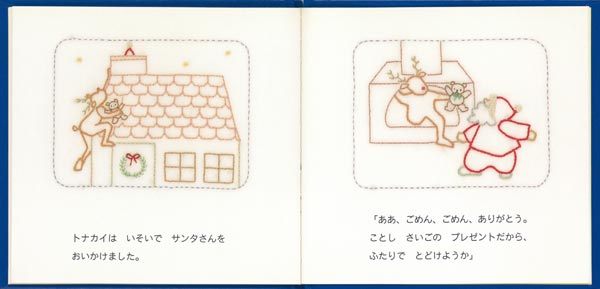 トナカイは　いそいで　サンタさんを
おいかけました。
「ああ、ごめん、ごめん、ありがとう。
ことし　さいごの　プレゼントだから、
ふたりで　とどけようか」